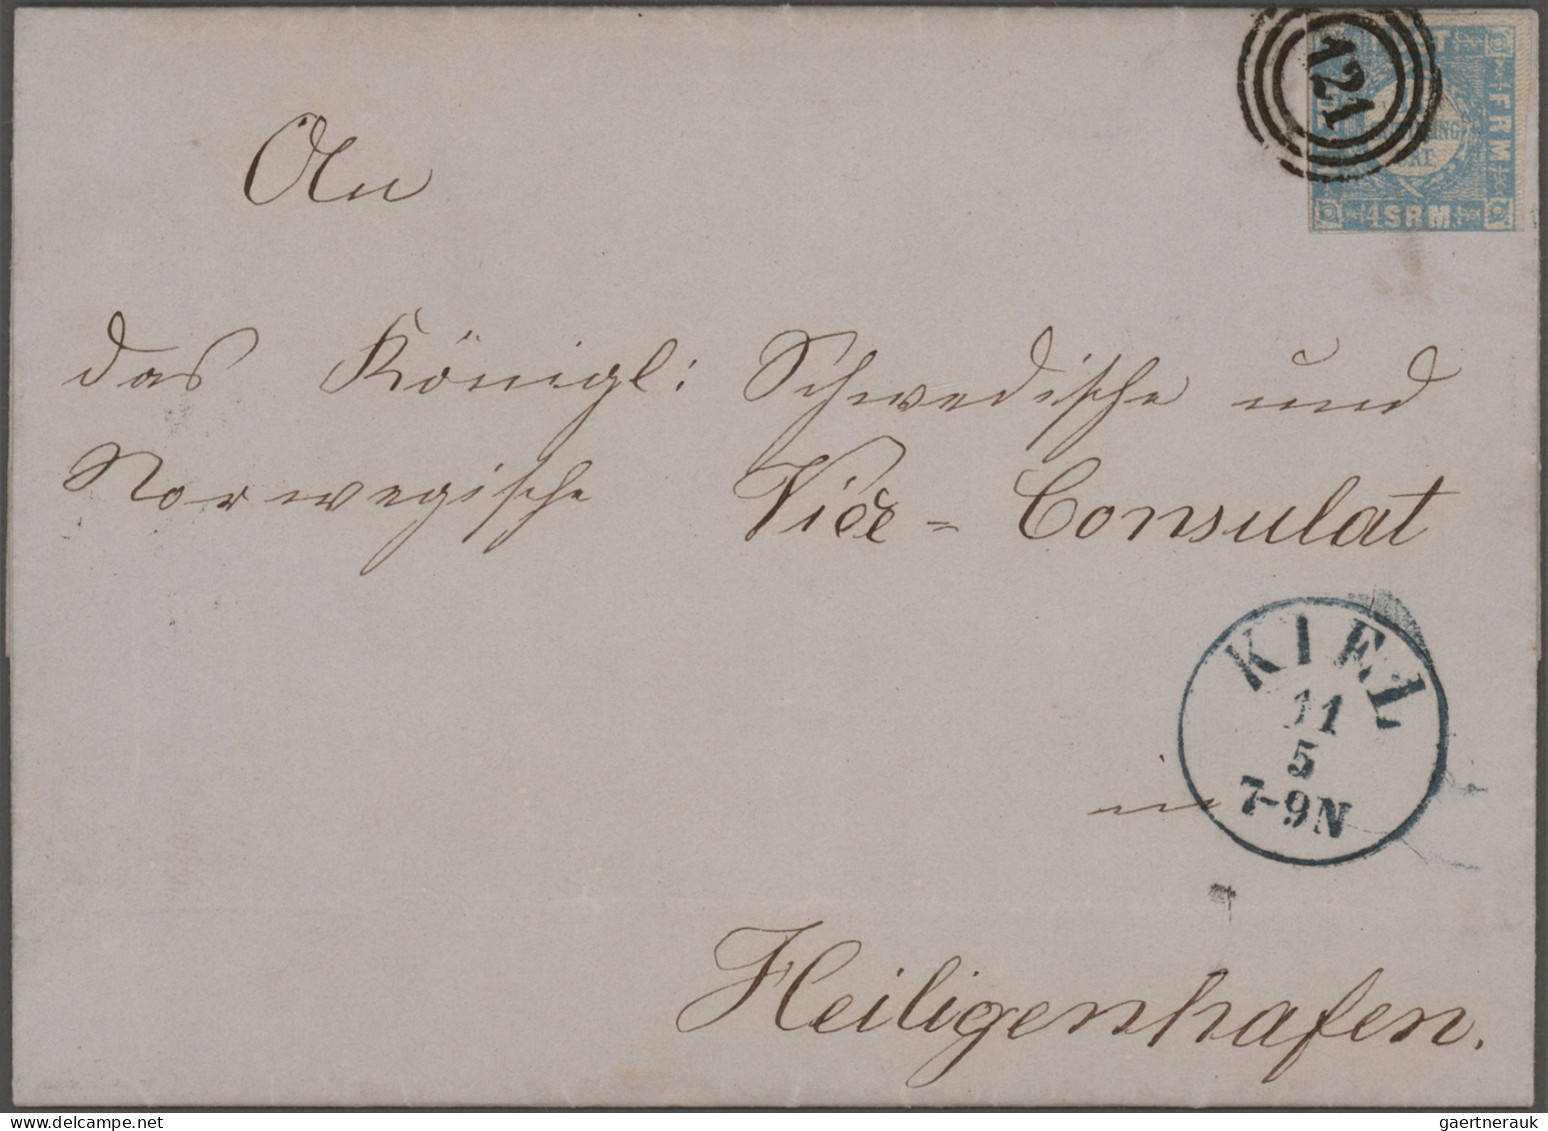 An
121
FRM
1¼ SRM
das Königl: Schwedische und
Norwegische Vice = Consulat
KIEL
11
5
7-9N
in
Heiligenhafen.
gaertnerauk